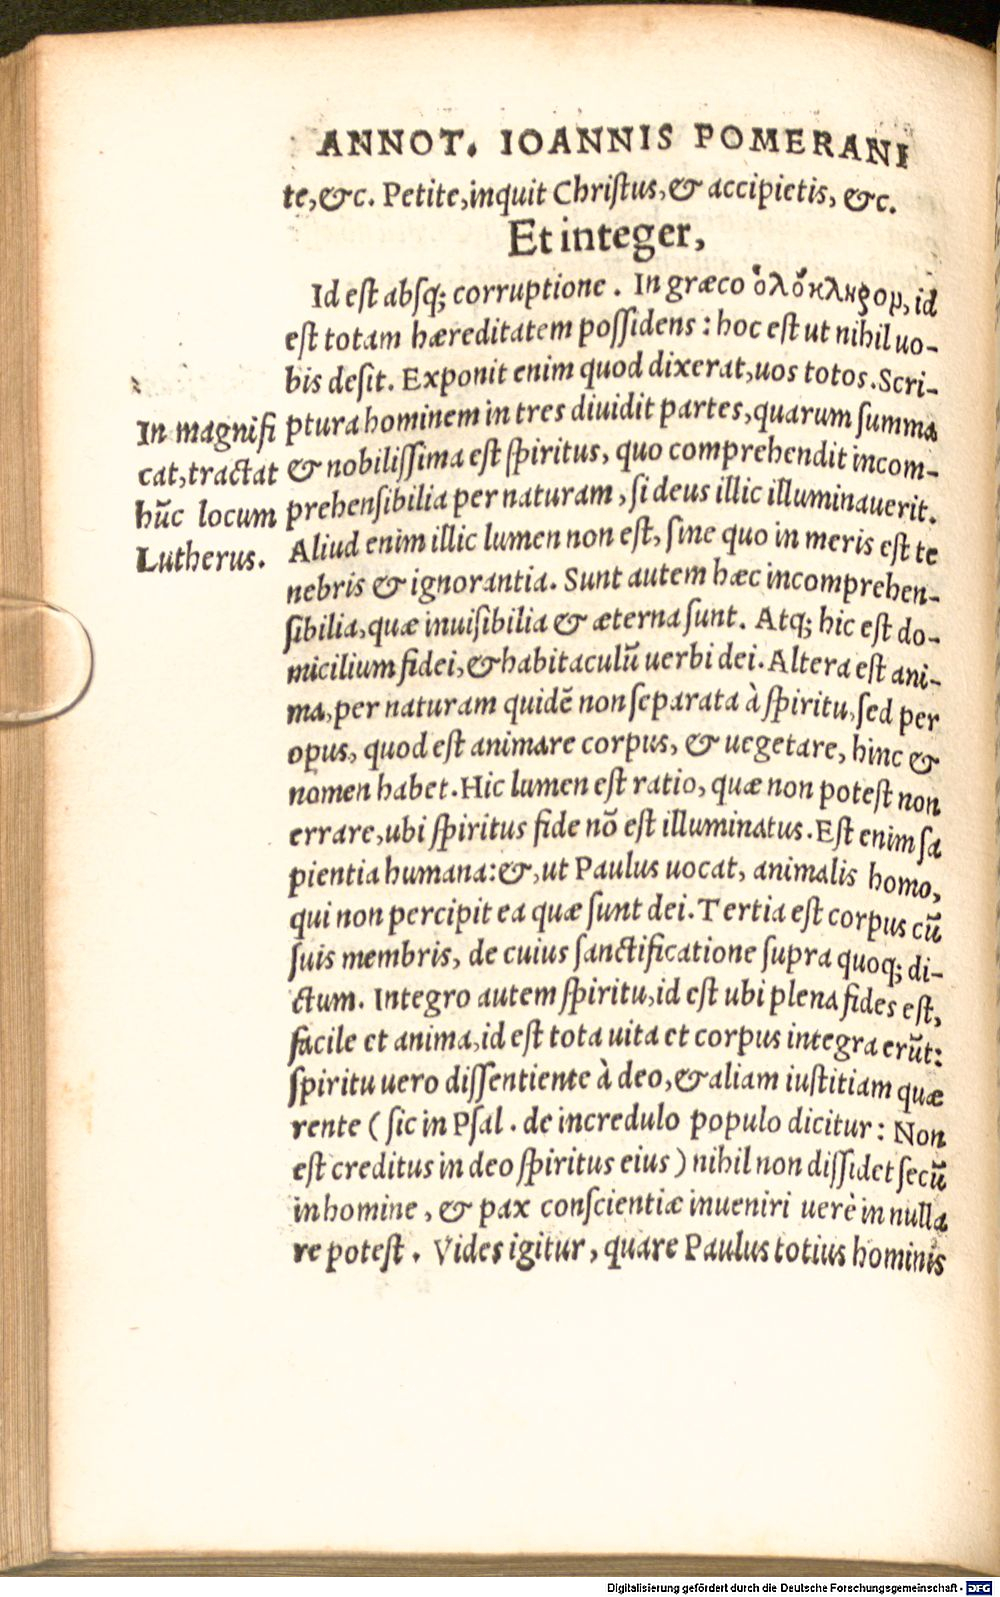 ANNOT. IOANNIS POMERANI
te, &c. Petite, inquit Chriſtus, & accipietis, &c.
Et integer,
Id est abſq; corruptione. In græco ὁλόκληρον, id
eſt totam hæreditatem poſſidens: hoc eſt ut nihil uo-
bis deſit. Exponit enim quod dixerat, uos totos. Scri-
ptura hominem in tres diuidit partes, quarum ſumma
& nobiliſſima eſt ſpiritus, quo comprehendit incom-
prehenſibilia per naturam, ſi deus illic illuminauerit.
Aliud enim illic lumen non eſt, ſine quo in meris eſt te
nebris & ignorantia. Sunt autem hæc incomprehen-
ſibilia, quæ inuiſibilia & æterna ſunt. Atq; hic eſt do-
micilium fidei, & habitaculū uerbi dei. Altera eſt ani-
ma, per naturam quidē non ſeparata à ſpiritu, ſed per
opus, quod eſt animare corpus, & uegetare, hinc &
nomen habet. Hic lumen eſt ratio, quæ non poteſt non
errare, ubi ſpiritus fide nō eſt illuminatus. Eſt enim ſa
pientia humana: &, ut Paulus uocat, animalis homo,
qui non percipit ea quæ ſunt dei. Tertia eſt corpus cū
ſuis membris, de cuius ſanctificatione ſupra quoq; di-
ctum. Integro autem ſpiritu, id eſt ubi plena fides eſt,
facile et anima, id eſt tota uita et corpus integra erūt:
ſpiritu uero diſſentiente à deo, & aliam iuſtitiam quæ
rente (ſic in Pſal. de incredulo populo dicitur: Non
eſt creditus in deo ſpiritus eius) nihil non diſſidet ſecū
in homine, & pax conſcientiæ inueniri uerè in nulla
re poteſt. Vides igitur, quare Paulus totius hominis
In magnifi
cat, tractat
hūc locum
Lutherus.
Digitalisierung gefördert durch die Deutsche Forschungsgemeinschaft - DFG